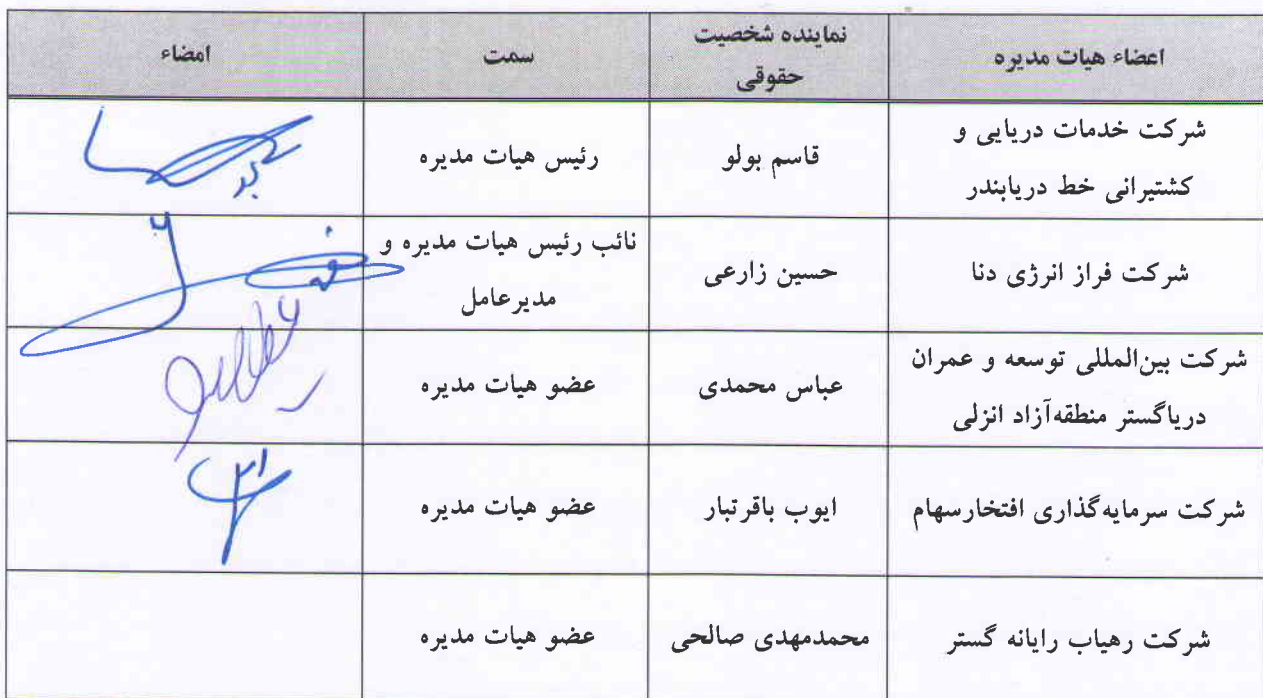 اعضاء هیات مدیره
نماینده شخصیت
حقوقی
سمت
امضاء
شرکت خدمات دریایی و
کشتیرانی خط دریابندر
قاسم بولو
رئیس هیات مدیره
شرکت فراز انرژی دنا
حسین زارعی
نائب رئیس هیات مدیره و
مدیرعامل
شرکت بین‌المللی توسعه و عمران
دریاگستر منطقه‌آزاد انزلی
عباس محمدی
عضو هیات مدیره
شرکت سرمایه‌گذاری افتخارسهام
ایوب باقرتبار
عضو هیات مدیره
شرکت رهیاب رایانه گستر
محمدمهدی صالحی
عضو هیات مدیره